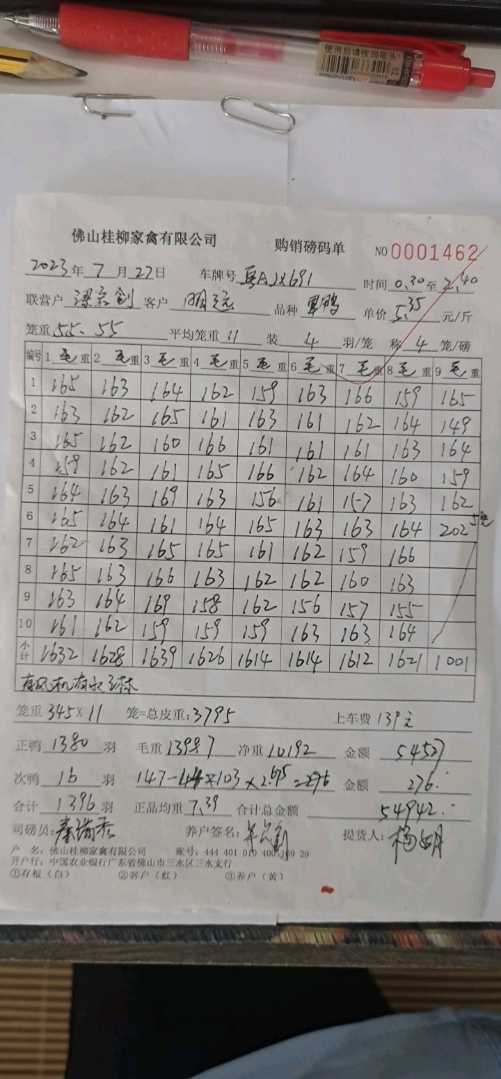 使用后请将笔头
佛山桂柳家禽有限公司 购销磅码单 NO 0001462
2023年 7 月 27日 车牌号 粤AJX691 时间 0.30 至 2.40
联营户 客户 明远 品种 单价 5.35 元/斤
笼重 55. 55 平均笼重 11 装 4 羽/笼 称 4 笼/磅
编号 1 毛 重 2 毛 重 3 毛 重 4 毛 重 5 毛 重 6 毛 重 7 毛 重 8 毛 重 9 毛 重
1 165 163 164 162 159 163 166 159 165
2 163 162 165 161 163 161 162 164 149
3 165 162 160 166 161 161 161 163 164
4 159 162 161 165 166 162 164 160 159
5 164 163 169 163 156 161 157 163 162
6 165 164 161 164 165 163 163 164 202 5笼
7 162 163 165 165 161 162 159 166
8 165 163 166 163 162 162 160 163
9 163 164 169 158 162 156 157 155
10 161 162 159 159 159 163 163 164
小计 1632 1628 1639 1626 1614 1614 1612 1621 1001
笼重 345×11 笼=总皮重: 3795 上车费 139元
正鸭 1380 羽 毛重 13987 净重 10192 金额 54527
次鸭 16 羽 147-44=103×2.68=276 金额 276.
合计 1396 羽 正品均重 7.39 合计总金额 54942.
司磅员: 养户签名: 提货人: 杨明
户 名: 佛山桂柳家禽有限公司 账号: 444 401 010 400 20
开户行: 中国农业银行广东省佛山市三水区三水支行
①存根（白） ②客户（红） ③养户（黄）